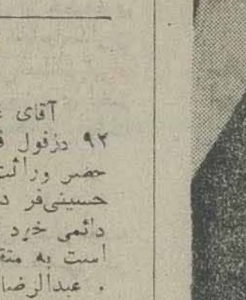 آقای
۹۲ دزفول
حصر وراثت
حسینی‌فر د
دائمی خود
است به
. عبدالرضا